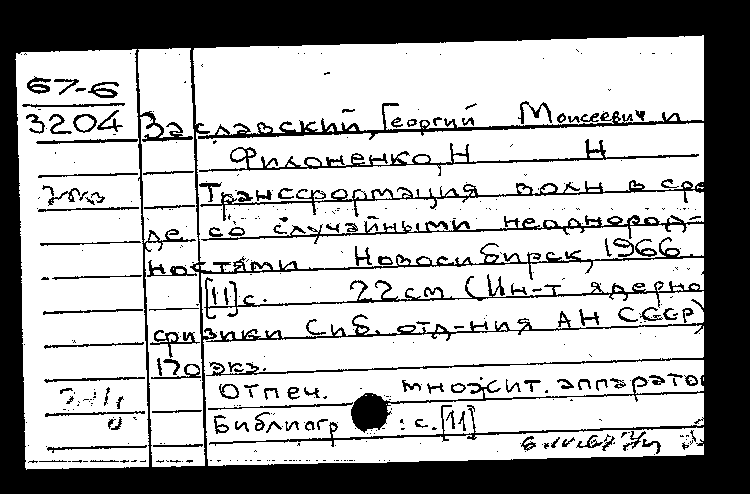 67-6
3204 Заславский, Георгий Моисеевич и
Филоненко, Н Н
Трансформация волн в сре
де со случайными неоднород=
ностями Новосибирск, 1966.
[11] с. 22 см (Ин-т ядерно
физики Сиб. отд-ния АН СССР)
170 экз.
Отпеч. множит. аппарато
Библиогр : с. [11]